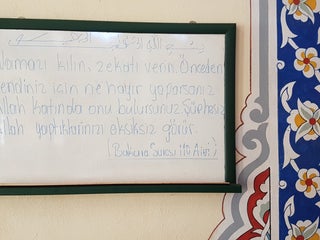 Namazı kılın, zekatı verin. Önceden
kendiniz için ne hayır yaparsanız
Allah katında onu bulursunuz. Şüphesiz
Allah yaptıklarınızı eksiksiz görür.
(Bakara Suresi 110. Ayet)